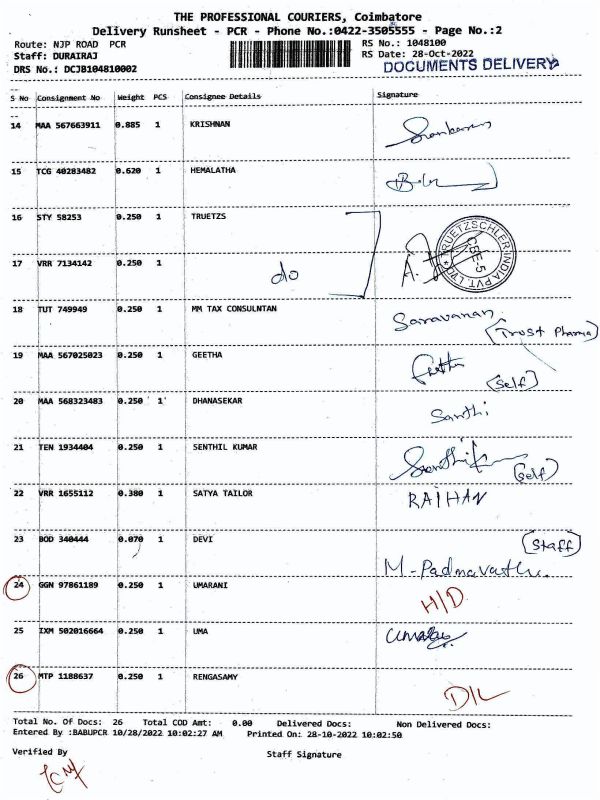 THE PROFESSIONAL COURIERS, Coimbatore
Delivery Runsheet - PCR - Phone No.:0422-3505555 - Page No.:2
Route: NJP ROAD PCR
RS No.: 1048100
Staff: DURAIRAJ
RS Date: 28-Oct-2022
DRS No.: DCJB104810002
DOCUMENTS DELIVERY
S No Consignment No Weight PCS Consignee Details Signature
14 MAA 567663911 0.885 1 KRISHNAN
15 TCG 40283482 0.620 1 HEMALATHA
16 STY 58253 0.250 1 TRUETZS
TRUETZSCHLER INDIA PVT. LTD
CBE-5
17 VRR 7134142 0.250 1 do
18 TUT 749949 0.250 1 MM TAX CONSULNTAN Saravanan
(Trust Pharma)
19 MAA 567025023 0.250 1 GEETHA Geetha
(Self)
20 MAA 568323483 0.250 1 DHANASEKAR Santhi
21 TEN 1934404 0.250 1 SENTHIL KUMAR
(self)
22 VRR 1655112 0.380 1 SATYA TAILOR RAIHAN
23 BOD 340444 0.070 1 DEVI (Staff)
M-Padmavathi
24 GGN 97861189 0.250 1 UMARANI H/D
25 IXM 502016664 0.250 1 UMA
26 MTP 1188637 0.250 1 RENGASAMY D/L
Total No. Of Docs: 26 Total COD Amt: 0.00 Delivered Docs: Non Delivered Docs:
Entered By :BABUPCR 10/28/2022 10:02:27 AM Printed On: 28-10-2022 10:02:50
Verified By Staff Signature